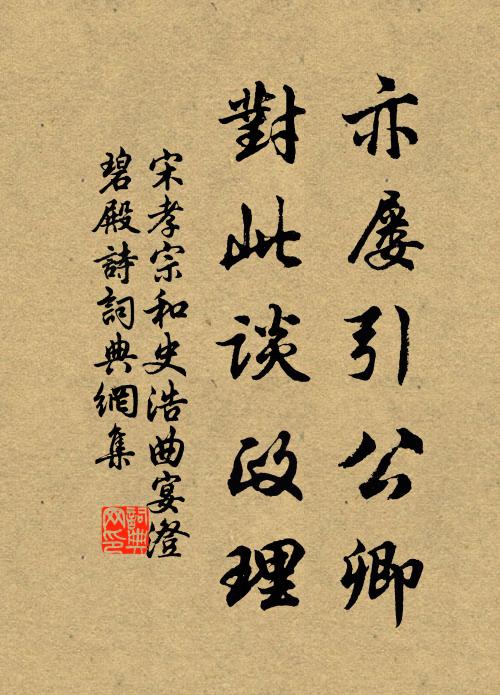 亦屡引公卿
對此談政理
宋孝宗和史浩曲宴澄
碧殿詩詞典網集
詞典
网印